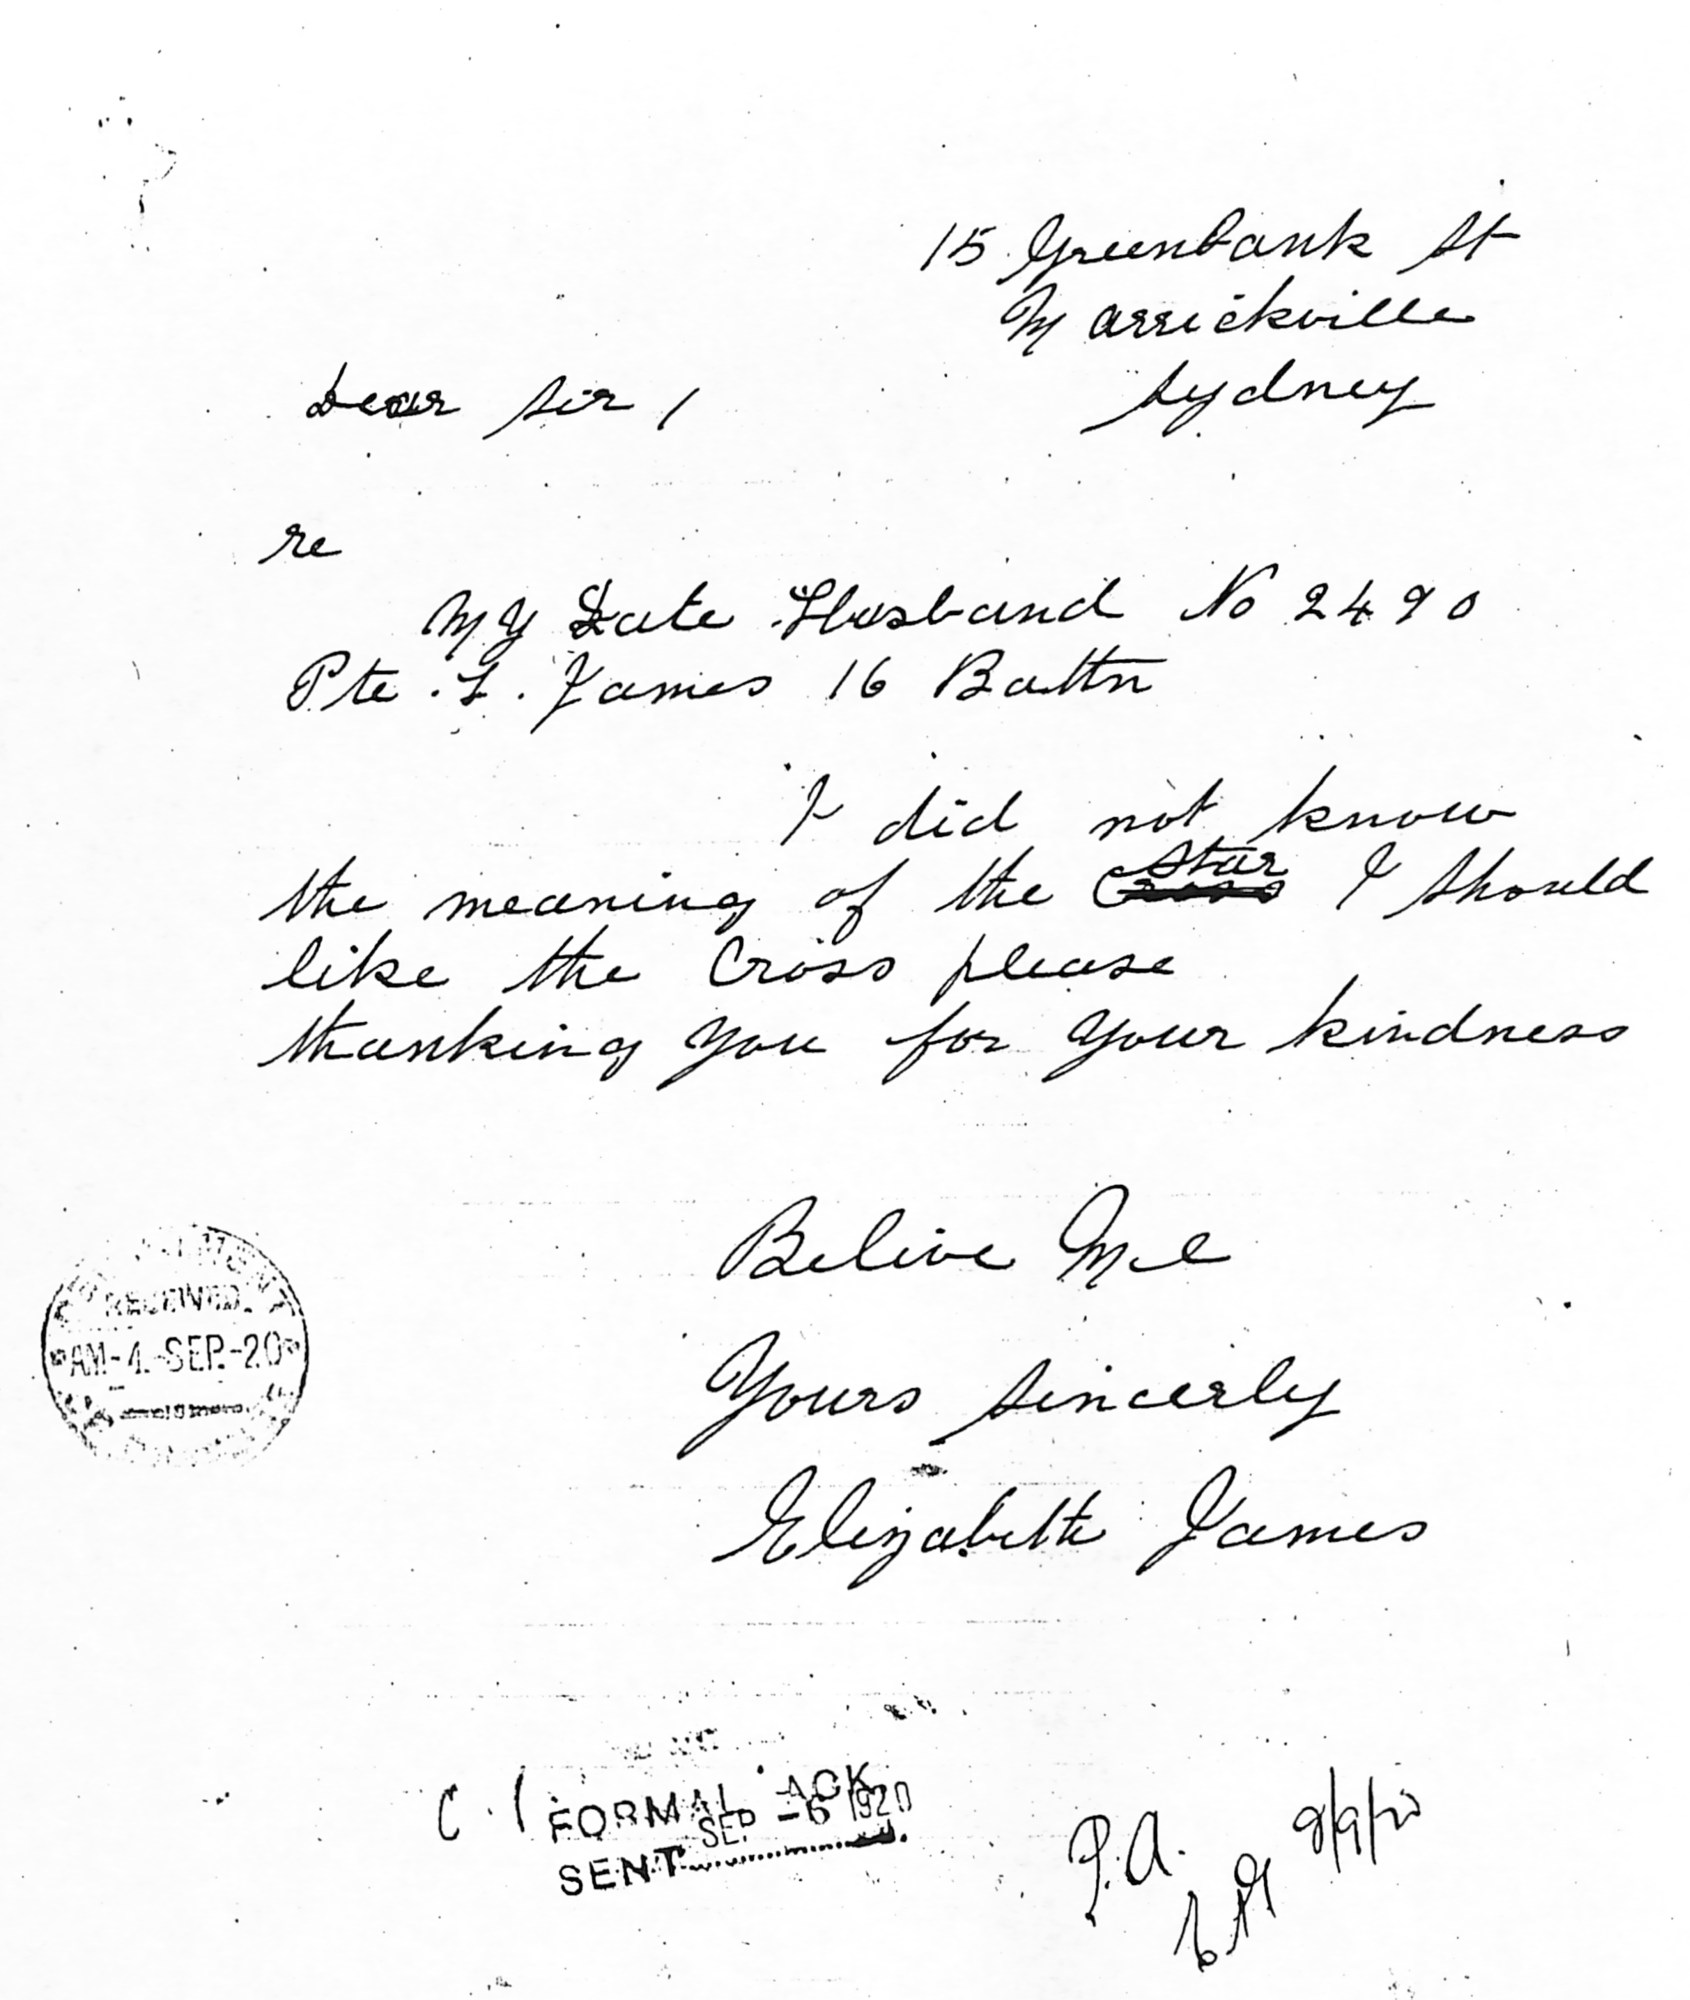 15 Greenbank St
Marrickville
Sydney
Dear Sir,
re
My Late Husband No 2490
Pte. L. James 16 Battn
I did not know
the meaning of the ~~Cross~~ Star I should
like the Cross please
thanking you for your kindness
Belive Me
Yours sincerly
Elizabeth James
RECEIVED
AM-4-SEP.-20
C. 1
FORMAL ACK
SEP -6 1920
SENT
P.A.
8/9/20